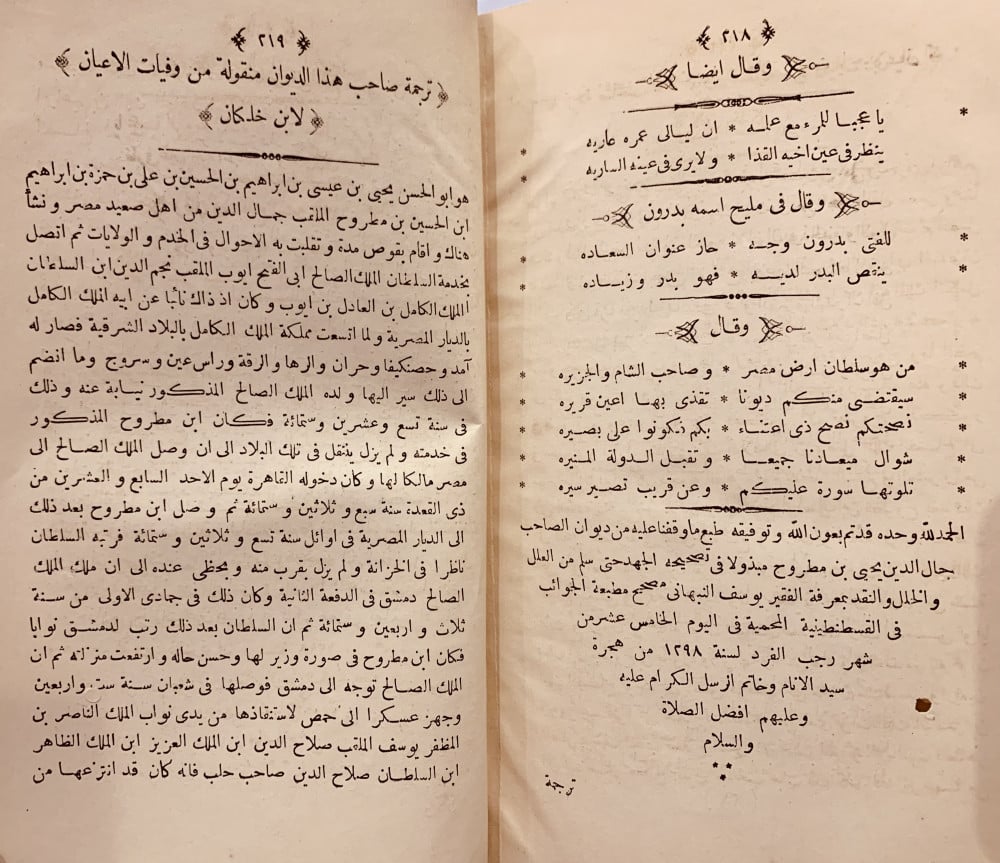 ﴿ ٢١٨ ﴾
وقال ايضا
يا عجبا للمرء مع علمه * ان ليالى عمره عاريه *
ينظر فى عين اخيه القذا * ولا يرى فى عينه الساريه *
وقال فى مليح اسمه بدرون
للفتى بدرون وجه * حاز عنوان السعاده *
ينقص البدر لديه * فهو بدر وزياده *
وقال
من هو سلطان ارض مصر * وصاحب الشام والجزيره *
سيقتضى منكم ديونا * تقذى بها اعين قريره *
نصحتكم نصح ذى اعتناء * بكم فكونوا على بصيره *
شوال ميعادنا جميعا * وتقبل الدولة المنيره *
تلوتها سورة عليكم * وعن قريب تصير سيره *
الحمد لله وحده قد تم بعون الله وتوفيقه طبع ما وقفنا عليه من ديوان الصاحب
جال الدين يحيى بن مطروح مبذولا فى تصحيحه الجهد حتى سلم من العلل
والخلل والنقد بمعرفة الفقير يوسف النبهانى مصحح مطبعة الجوائب
فى القسطنطينية المحمية فى اليوم الخامس عشر من
شهر رجب الفرد لسنة ١٢٩٨ من هجرة
سيد الانام وخاتم الرسل الكرام عليه
وعليهم افضل الصلاة
والسلام
ترجمة
﴿ ٢١٩ ﴾
﴿ ترجمة صاحب هذا الديوان منقولة من وفيات الاعيان ﴾
﴿ لابن خلكان ﴾
هو ابو الحسن يحيى بن عيسى بن ابراهيم بن الحسين بن على بن حمزة بن ابراهيم
ابن الحسين بن مطروح الملقب جمال الدين من اهل صعيد مصر ونشأ
هناك واقام بقوص مدة وتقلبت به الاحوال فى الخدم والولايات ثم اتصل
بخدمة السلطان الملك الصالح ابى الفتح ايوب الملقب نجم الدين ابن السلطان
الملك الكامل بن العادل بن ايوب وكان اذ ذاك نائبا عن ابيه الملك الكامل
بالديار المصرية ولما اتسعت مملكة الملك الكامل بالبلاد الشرقية فصار له
آمد وحصنكيفا وحران والرها والرقة وراس عين وسروج وما انضم
الى ذلك سير اليها ولده الملك الصالح المذكور نيابة عنه وذلك
فى سنة تسع وعشرين وستمائة فكان ابن مطروح المذكور
فى خدمته ولم يزل ينتقل فى تلك البلاد الى ان وصل الملك الصالح الى
مصر مالكا لها وكان دخوله القاهرة يوم الاحد السابع والعشرين من
ذى القعدة سنة سبع وثلاثين وستمائة ثم وصل ابن مطروح بعد ذلك
الى الديار المصرية فى اوائل سنة تسع وثلاثين وستمائة فرتبه السلطان
ناظرا فى الخزانة ولم يزل يقرب منه ويحظى عنده الى ان ملك الملك
الصالح دمشق فى الدفعة الثانية وكان ذلك فى جمادى الاولى من سنة
ثلاث واربعين وستمائة ثم ان السلطان بعد ذلك رتب لدمشق نوابا
فكان ابن مطروح فى صورة وزير لها وحسن حاله وارتفعت منزلته ثم ان
الملك الصالح توجه الى دمشق فوصلها فى شعبان سنة ست واربعين
وجهز عسكرا الى حمص لاستنقاذها من يدى نواب الملك الناصر بن
المظفر يوسف الملقب صلاح الدين ابن الملك العزيز ابن الملك الظاهر
ابن السلطان صلاح الدين صاحب حلب فانه كان قد انتزعها من